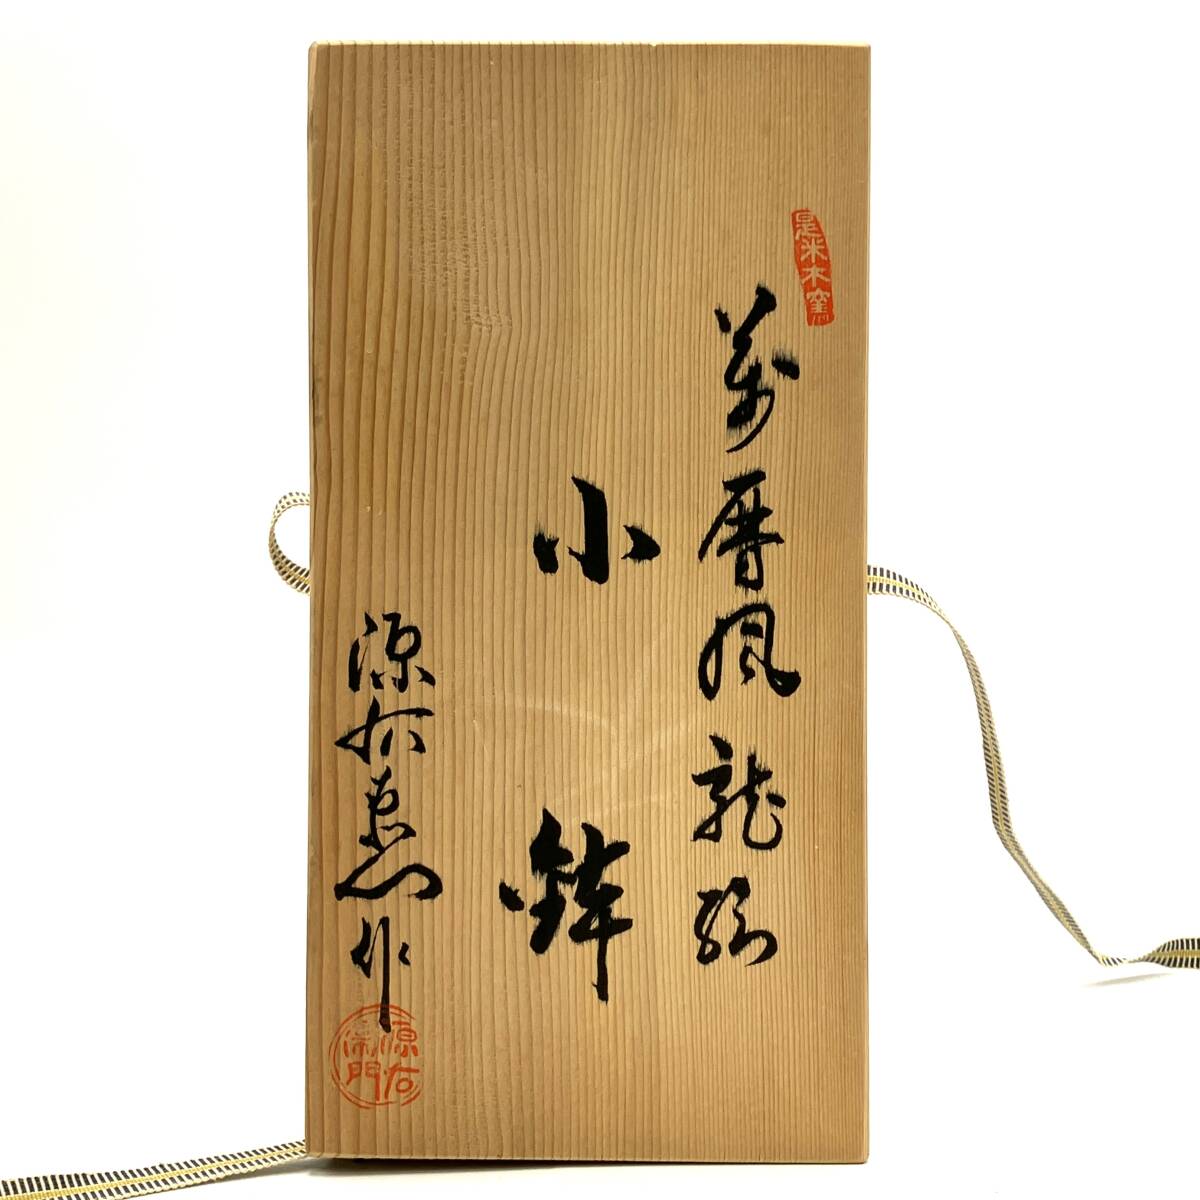 是米木窯
萬暦風龍绘
小鉢
源右衛門作
源右
衛門